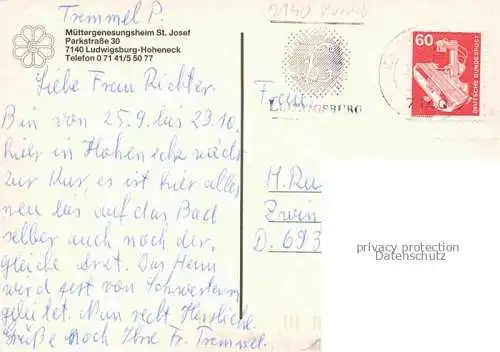 Tremmel P.
Müttergenesungsheim St. Josef
Parkstraße 30
7140 Ludwigsburg-Hoheneck
Telefon 0 71 41/5 50 77
Liebe Frau Richter.
Bin von 25.9. bis 23.10.
hier in Hoheneck
zur Kur, es ist hier alles
neu bis auf das Bad
selber auch noch der
gleiche Arzt. Das Heim
wird jetzt von Schwestern
geleitet. Nun recht Herzliche
Grüße noch Ihre Fr. Tremmel.
60
DEUTSCHE BUNDESPOST
Zwin
D. 693
privacy protection
Datenschutz